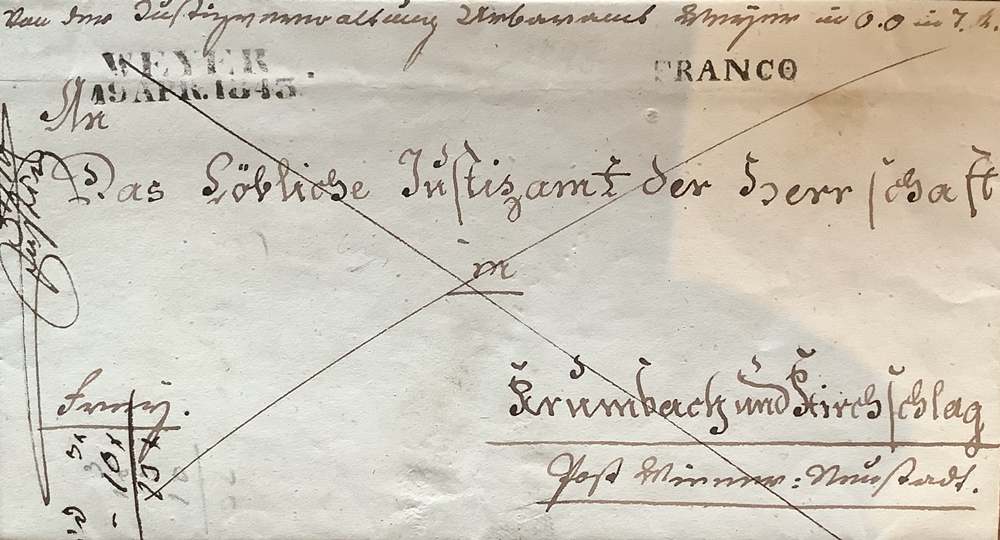 Von der Justizverwaltung Urbaramt Weyer in O.O in
WEYER
19 APR. 1843.
FRANCO
An
Das Löbliche Justizamt der Herrschaft
in
Krumbach und Kirchschlag
Post Wiener: Neustadt.